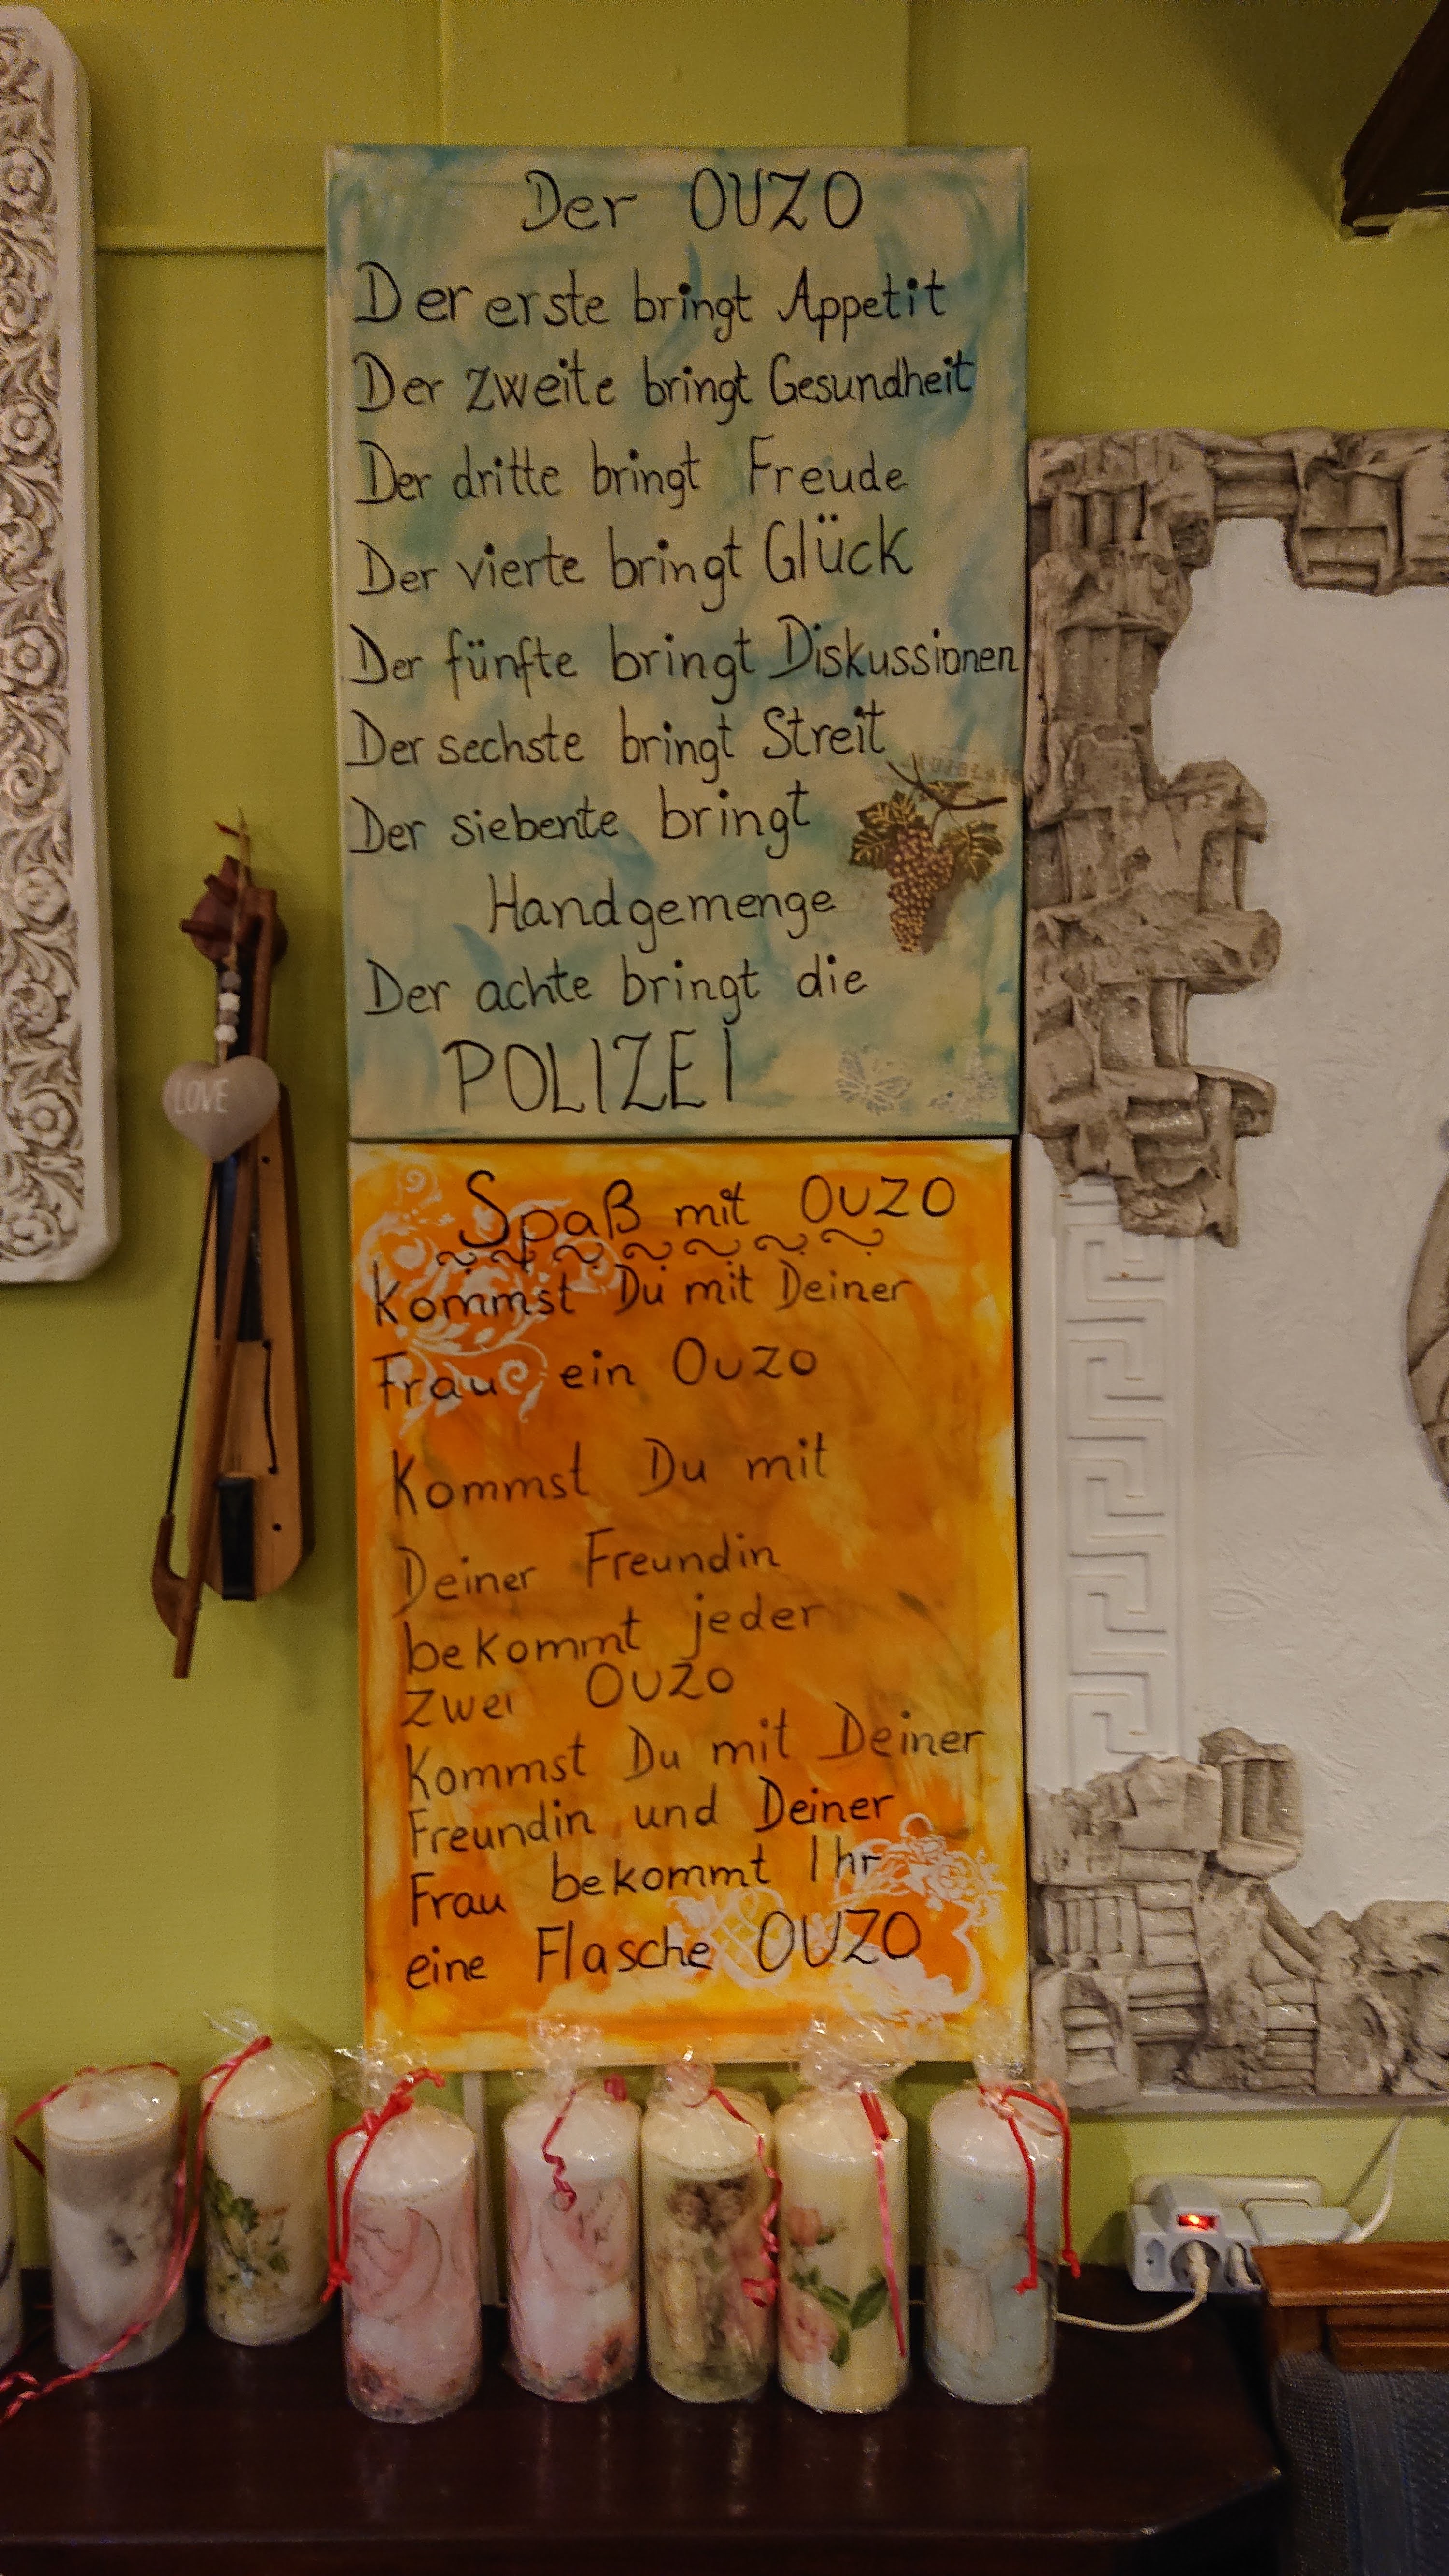 Der OUZO
Der erste bringt Appetit
Der zweite bringt Gesundheit
Der dritte bringt Freude
Der vierte bringt Glück
Der fünfte bringt Diskussionen
Der sechste bringt Streit
Der siebente bringt
Handgemenge
Der achte bringt die
POLIZEI
LOVE
Spaß mit OUZO
Kommst Du mit Deiner
Frau ein Ouzo
Kommst Du mit
Deiner Freundin
bekommt jeder
zwei OUZO
Kommst Du mit Deiner
Freundin und Deiner
Frau bekommt Ihr
eine Flasche OUZO